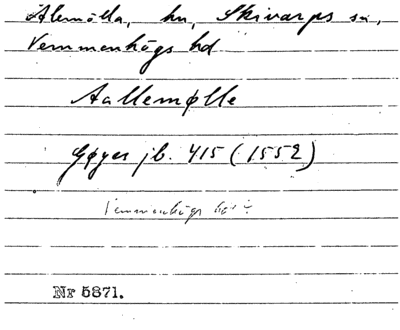 Ålemölla, hu, Skivarps sn,
Vemmenhögs hd
Aallemølle
Gøyes jb. 415 (1552)
Vemmenhögs
Nr 5871.